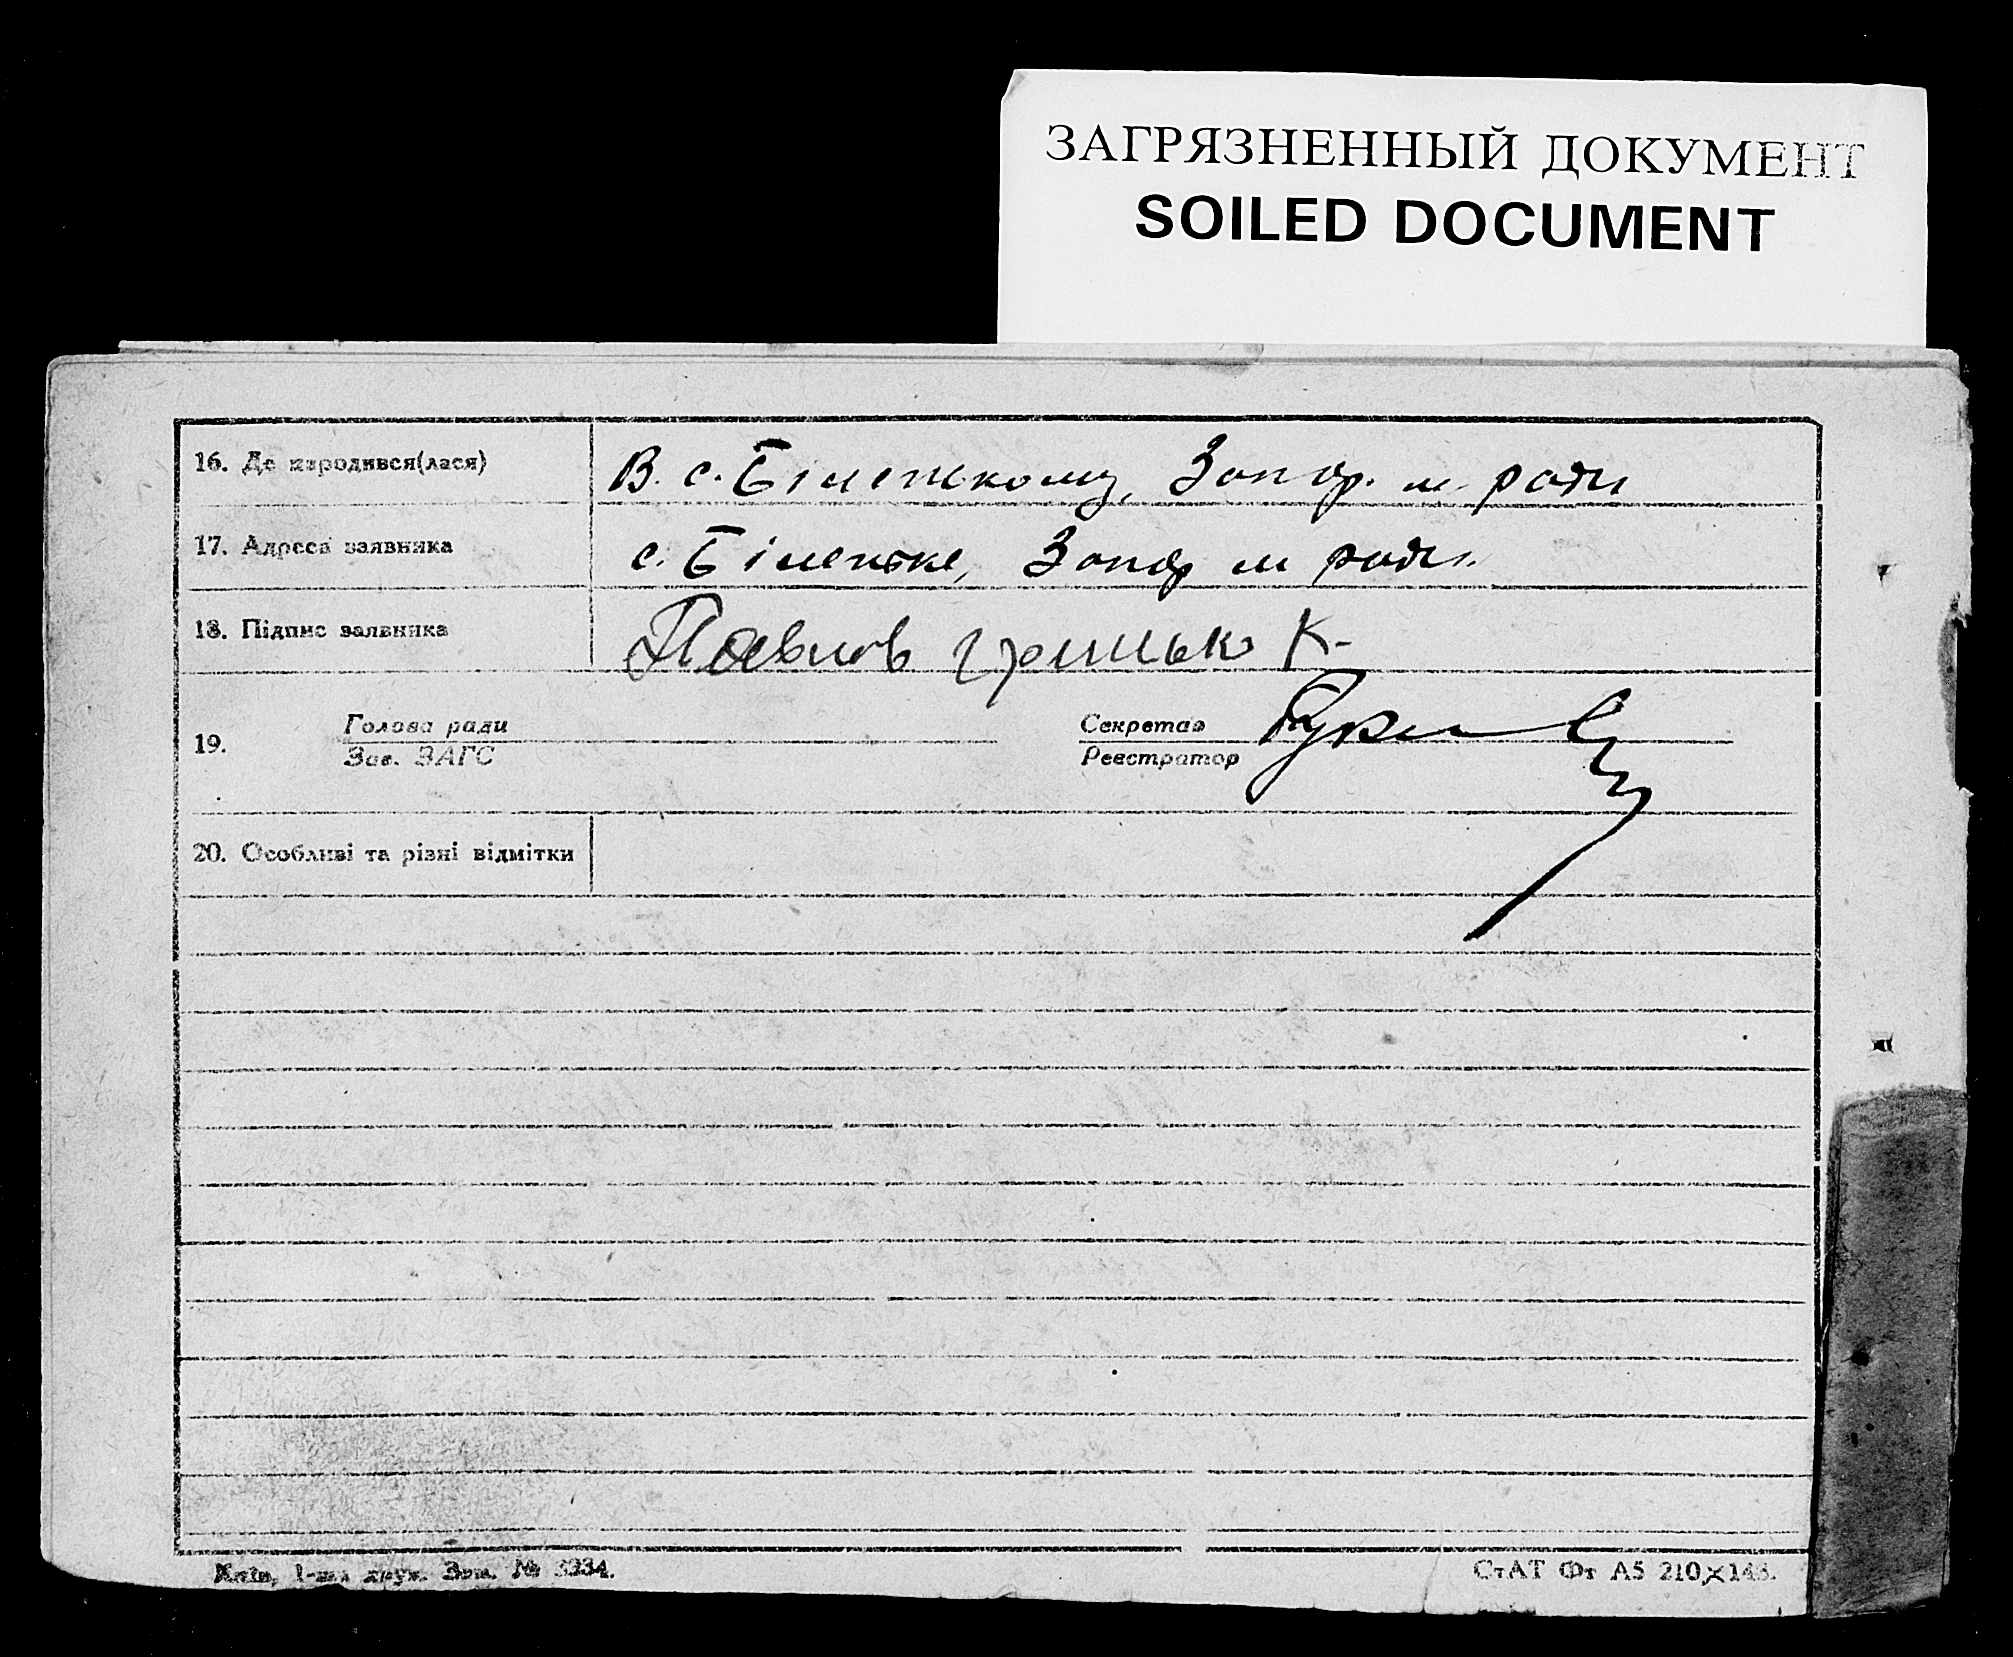 ЗАГРЯЗНЕННЫЙ ДОКУМЕНТ
SOILED DOCUMENT
16. Де народився(лася) В. с. Біленькому, Запор. м. ради
17. Адреса заявника с. Біленьке, Запор м ради
18. Підпис заявника Павлов Гринько К.
19. Голова ради Секретар
Зав. ЗАГС Реєстратор
20. Особливі та різні відмітки
Київ, 1-ша друк. Зам. № 3334.
СтАТ Фт А5 210×148.